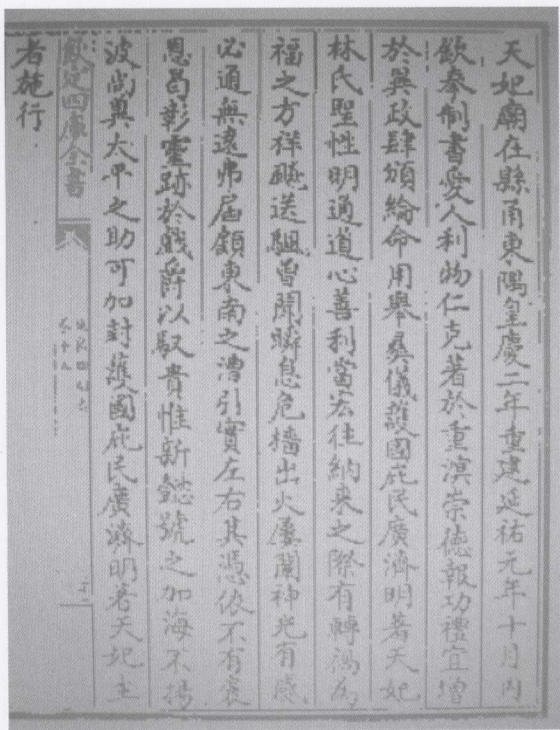 天妃廟在縣甬東隅皇慶二年重建延祐元年十月内
欽奉制書愛人利物仁克著於重溟崇德報功禮宜增
於異政肆頒綸命用舉彞儀護國庇民廣濟明著天妃
林氏聖性明通道心善利當宏往納來之際有轉禍為
福之方祥飈送颿曾聞瞬息危檣出火屢闡神光有感
必通無遠弗屆顧東南之漕引實左右其憑依不有褒
恩曷彰靈跡於戲爵以馭貴惟新懿號之加海不揚
波尚異太平之助可加封護國庇民廣濟明著天妃主
欽定四庫全書
延祐四明志
者施行